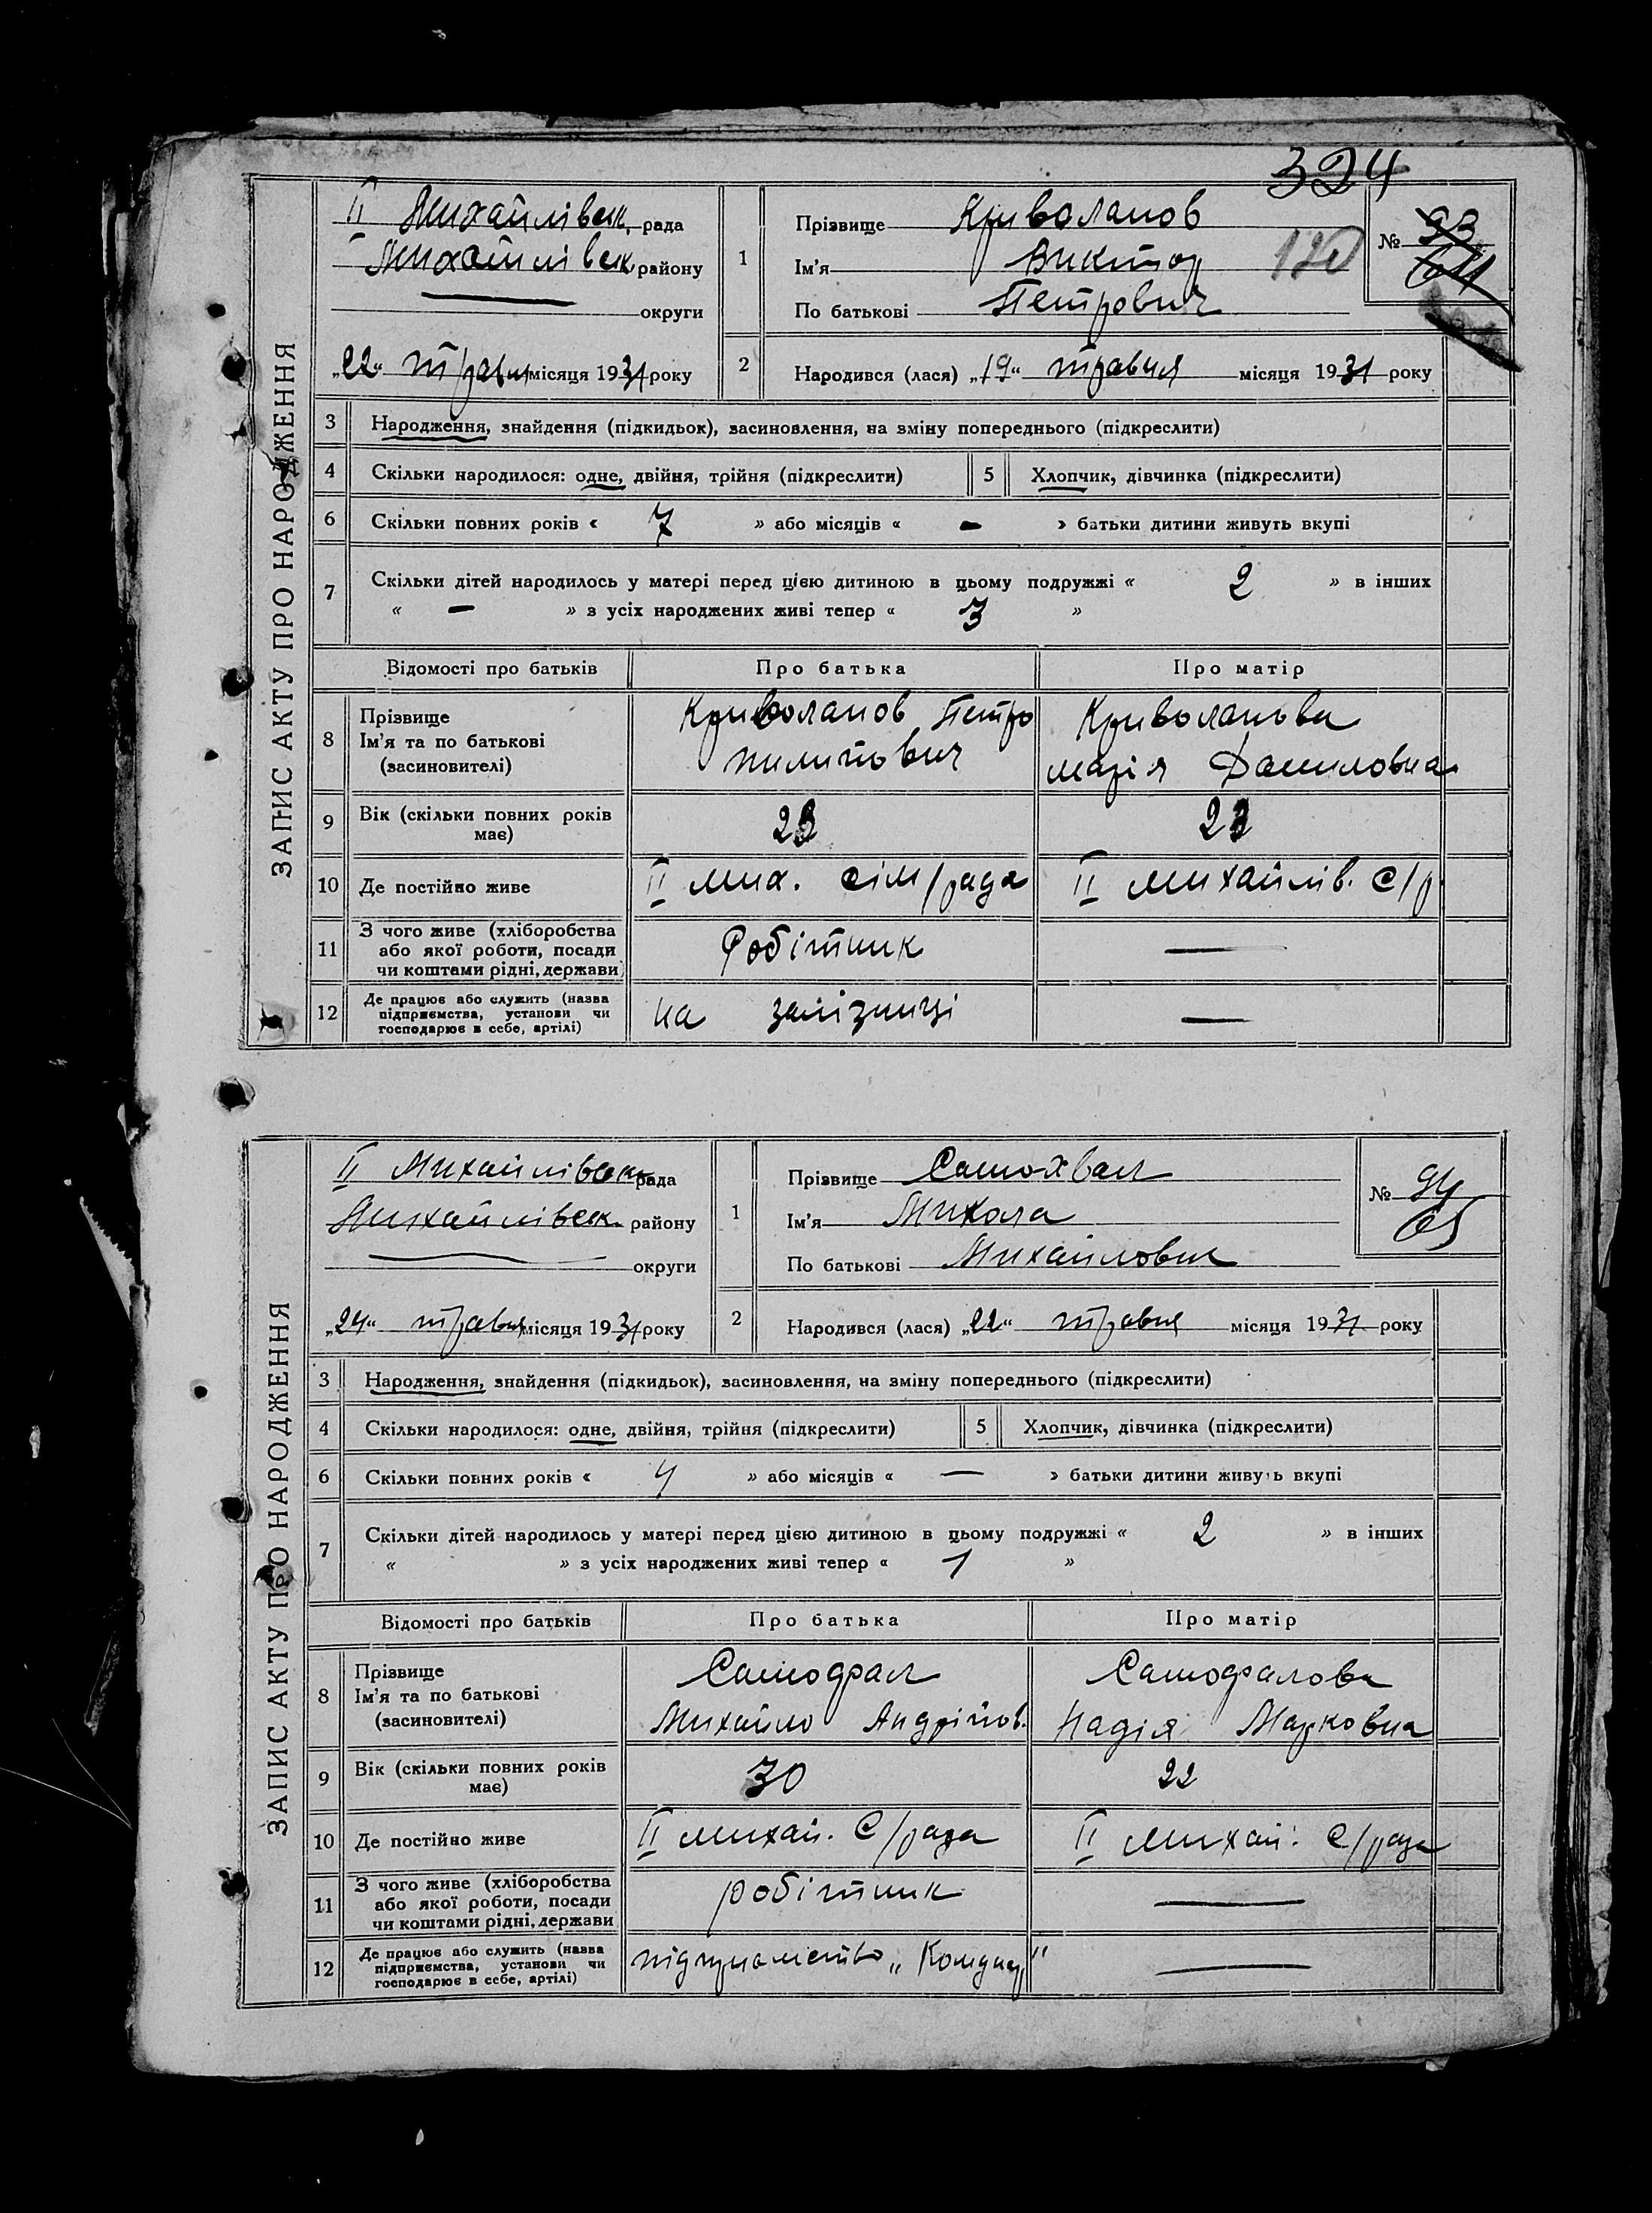 324
ЗАПИС АКТУ ПРО НАРОДЖЕННЯ
II Михайлівськ. рада
Михайлівськ. району
округи
„22“ травня місяця 1931 року
1
Прізвище Криволапов
Ім'я Виктор
120
По батькові Петрович
№ 93
2
Народився (лася) „19“ травня місяця 1931 року
3 Народження, знайдення (підкидьок), засиновлення, на зміну попереднього (підкреслити)
4 Скільки народилося: одне, двійня, трійня (підкреслити) 5 Хлопчик, дівчинка (підкреслити)
6 Скільки повних років « 7 » або місяців « — » батьки дитини живуть вкупі
7 Скільки дітей народилось у матері перед цією дитиною в цьому подружжі « 2 » в інших
« — » з усіх народжених живі тепер « 3 »
Відомості про батьків Про батька Про матір
8 Прізвище Ім'я та по батькові (засиновителі)
Криволапов Петро
Пилипович
Криволапова
Марія Даниловна
9 Вік (скільки повних років має) 28 23
10 Де постійно живе II Мих. сіл/рада II Михайлів. С/р.
11 З чого живе (хліборобства
або якої роботи, посади
чи коштами рідні, держави)
Робітник —
12 Де працює або служить (назва
підприємства, установи чи
господарює в себе, артілі)
на залізниці —
ЗАПИС АКТУ ПРО НАРОДЖЕННЯ
II Михайлівськ. рада
Михайлівськ. району
округи
„24“ травня місяця 1931 року
1
Прізвище Самохвал
Ім'я Микола
По батькові Михайлович
№ 94
65
2
Народився (лася) „22“ травня місяця 1931 року
3 Народження, знайдення (підкидьок), засиновлення, на зміну попереднього (підкреслити)
4 Скільки народилося: одне, двійня, трійня (підкреслити) 5 Хлопчик, дівчинка (підкреслити)
6 Скільки повних років « 4 » або місяців « — » батьки дитини живуть вкупі
7 Скільки дітей народилось у матері перед цією дитиною в цьому подружжі « 2 » в інших
« » з усіх народжених живі тепер « 1 »
Відомості про батьків Про батька Про матір
8 Прізвище Ім'я та по батькові (засиновителі)
Самофал
Михайло Андрійов.
Самофалова
Надія Марковна
9 Вік (скільки повних років має) 30 22
10 Де постійно живе II Михай. С/рада II Михай. С/рада
11 З чого живе (хліборобства
або якої роботи, посади
чи коштами рідні, держави
робітник —
12 Де працює або служить (назва
підприємства, установи чи
господарює в себе, артілі)
—